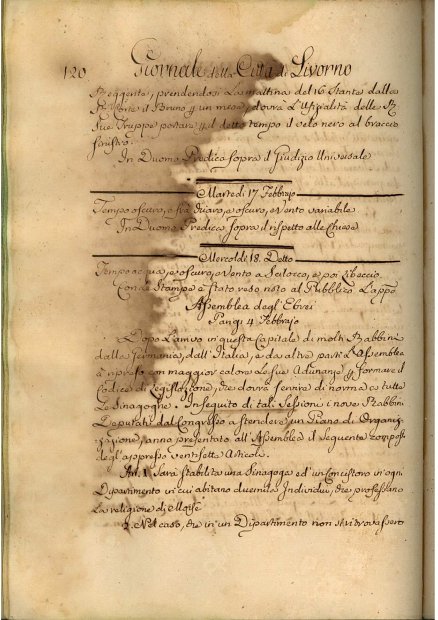 120 Giornale della Città di Livorno
Reggente, prendendosi la mattina del 16 stante dalla
il Bruno p un mese, dovrà l'Ufizialità delle
Sue Truppe portare p il detto tempo il velo nero al braccio
sinistro.
In Duomo Predica sopra il Giudizio Universale
Martedì 17 Febbrajo
Tempo oscuro, e oscuro, e Vento variabile
In Duomo Predica sopra il rispetto alle Chiese
Mercoldì 18. Detto
Tempo acqua, e oscuro, e vento a Scilocco, e poi Libeccio
Con la Stampa è stato reso noto al Pubblico l'appo
Assemblea degl'Ebrei
Parigi 4 Febbrajo
Dopo l'arrivo in questa Capitale di molti Rabbini
dalla Germania, dall'Italia, e da altre parti l'Assemblea
à ripreso con maggior calore le sue Adunanze p formare il
Codice di Legislazione, che dovrà servire di norma a tutte
le Sinagoghe. In seguito di tali Sessioni i nove Rabbini
Deputati dal Congresso a stendere un Piano di Organiz-
zazione, anno presentato all'Assemblea il seguente compo
degl'appresso ventisette Articoli.
Art. 1. Sarà stabilita una Sinagoga ed un Concistoro in ogni
Dipartimento in cui abitano duemila Individui, che professano
la religione di Moisè
2. Nel caso, che in un Dipartimento non si ritrovassero